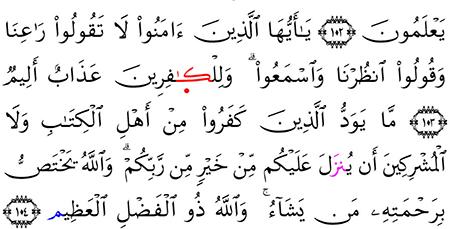 يَعْلَمُونَ ۝١٠٢ يَـٰٓأَيُّهَا ٱلَّذِينَ ءَامَنُواْ لَا تَقُولُواْ رَٰعِنَا
وَقُولُواْ ٱنظُرْنَا وَٱسْمَعُواْۗ وَلِلْكَـٰفِرِينَ عَذَابٌ أَلِيمٌ
۝١٠٣ مَّا يَوَدُّ ٱلَّذِينَ كَفَرُواْ مِنْ أَهْلِ ٱلْكِتَـٰبِ وَلَا
ٱلْمُشْرِكِينَ أَن يُنزَلَ عَلَيْكُم مِّنْ خَيْرٍ مِّن رَّبِّكُمْۗ وَٱللَّهُ يَخْتَصُّ
بِرَحْمَتِهِۦ مَن يَشَآءُۚ وَٱللَّهُ ذُو ٱلْفَضْلِ ٱلْعَظِيمِ ۝١٠٤